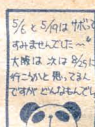 5/6と5/19はサボって
すみませんでした…
大阪は次は8/23に
行こうかと思ってまス
ですがどんなもんでし